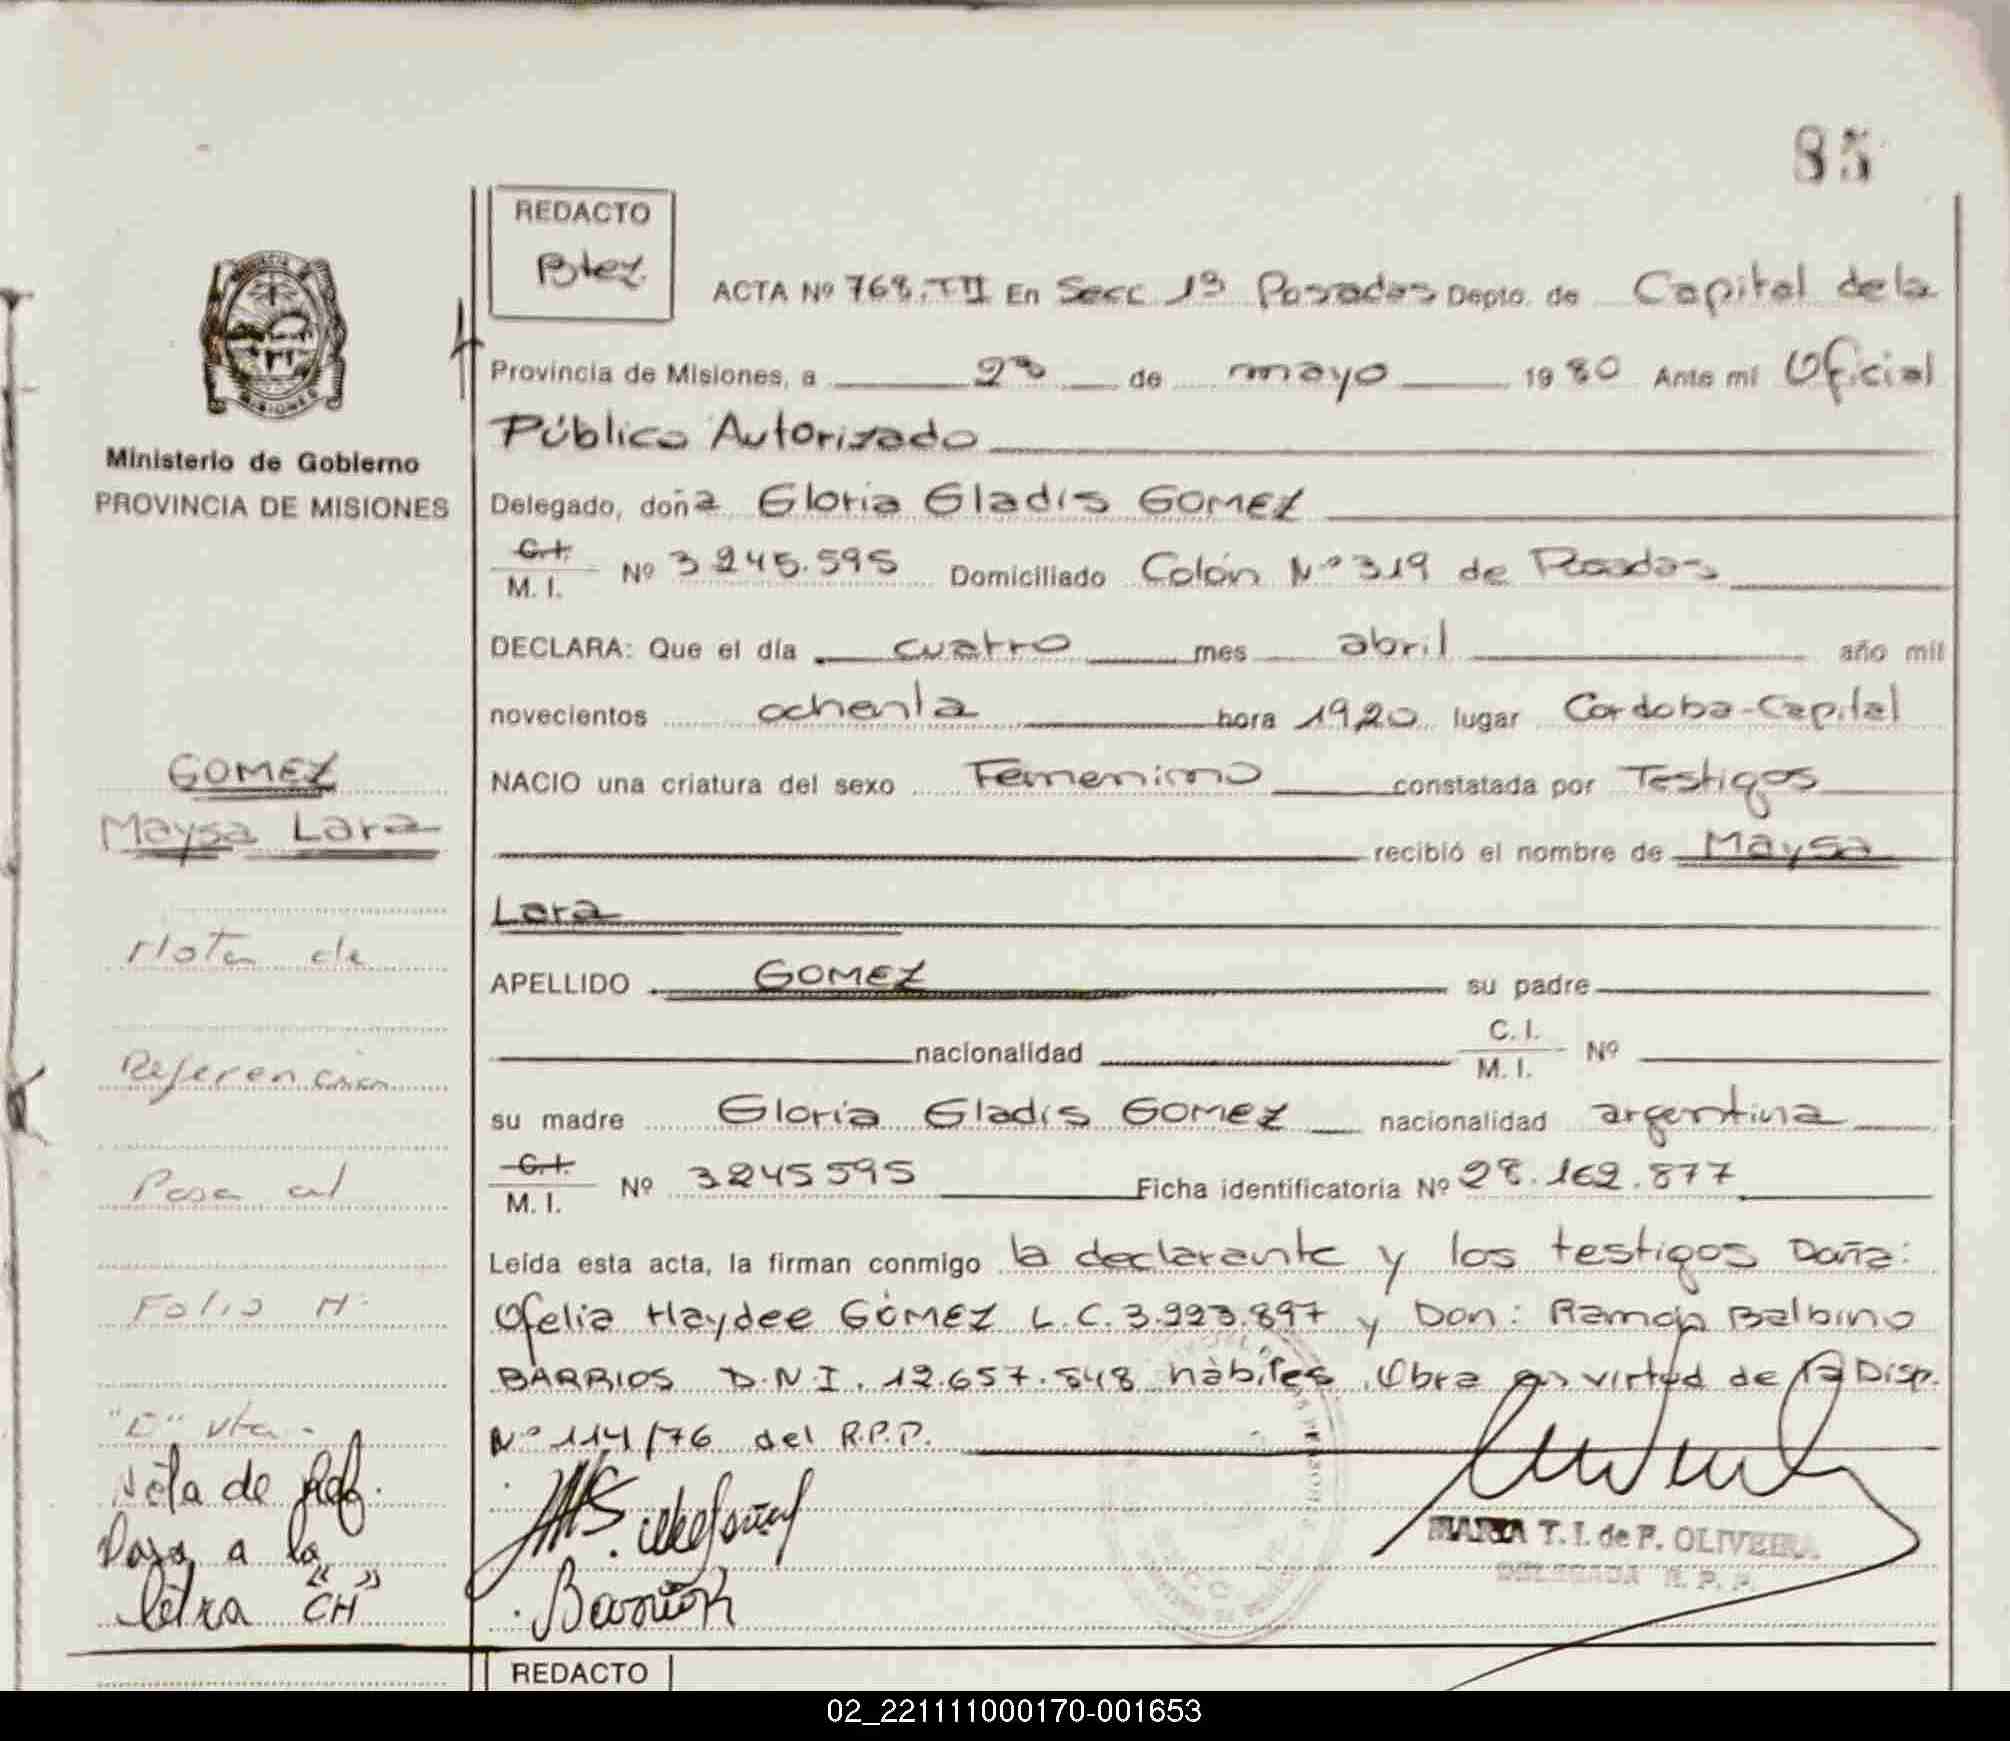 85
REDACTO
Btez.
ACTA Nº 768.TII En Secc 1ª Posadas Depto. de Capital de la
Provincia de Misiones, a 23 de mayo 1980 Ante mi Oficial
Público Autorizado
Delegado, doña Gloria Gladis GOMEZ
C.I.
M. I. Nº 3245.595 Domiciliado Colón Nº 319 de Posadas
DECLARA: Que el día cuatro mes abril año mil
novecientos ochenta hora 19,20 lugar Cordoba-Capital
NACIO una criatura del sexo Femenino constatada por Testigos
recibió el nombre de Maysa
Lara
APELLIDO GOMEZ su padre
nacionalidad C. I.
M. I. Nº
su madre Gloria Gladis GOMEZ nacionalidad argentina
C.I.
M. I. Nº 3245595 Ficha identificatoria Nº 28.162.877
Leída esta acta, la firman conmigo la declarante y los testigos Doña:
Ofelia Haydee GÓMEZ L.C. 3.223.897 y Don: Ramón Balbino
BARRIOS D.N.I. 12.657.548 hábiles. Obra en virtud de la Disp.
Nº 114/76 del R.P.P.
MARIA T. I. de F. OLIVEIRA
DELEGADA R. P. P.
REDACTO
Ministerio de Gobierno
PROVINCIA DE MISIONES
GOMEZ
Maysa Lara
Nota de
Referencia
Pasa al
Folio Nº
"D" vta.
Nota de Ref.
Pasa a la
letra "CH"
02_221111000170-001653